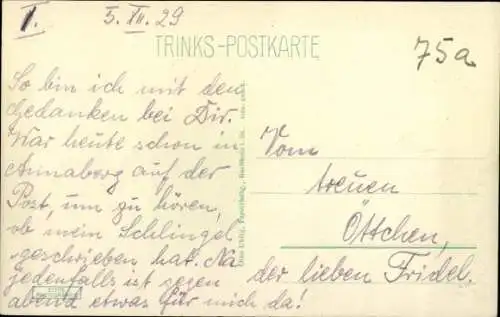 I.
5. XII. 29
TRINKS-POSTKARTE
75a
So bin ich mit den
Gedanken bei Dir.
War heute schon in
Annaberg auf der
Post, um zu hören,
ob mein Schlingel
geschrieben hat. Na
jedenfalls ist gegen
abend etwas für mich da!
Vom
treuen
Öttchen,
der lieben Fridel.